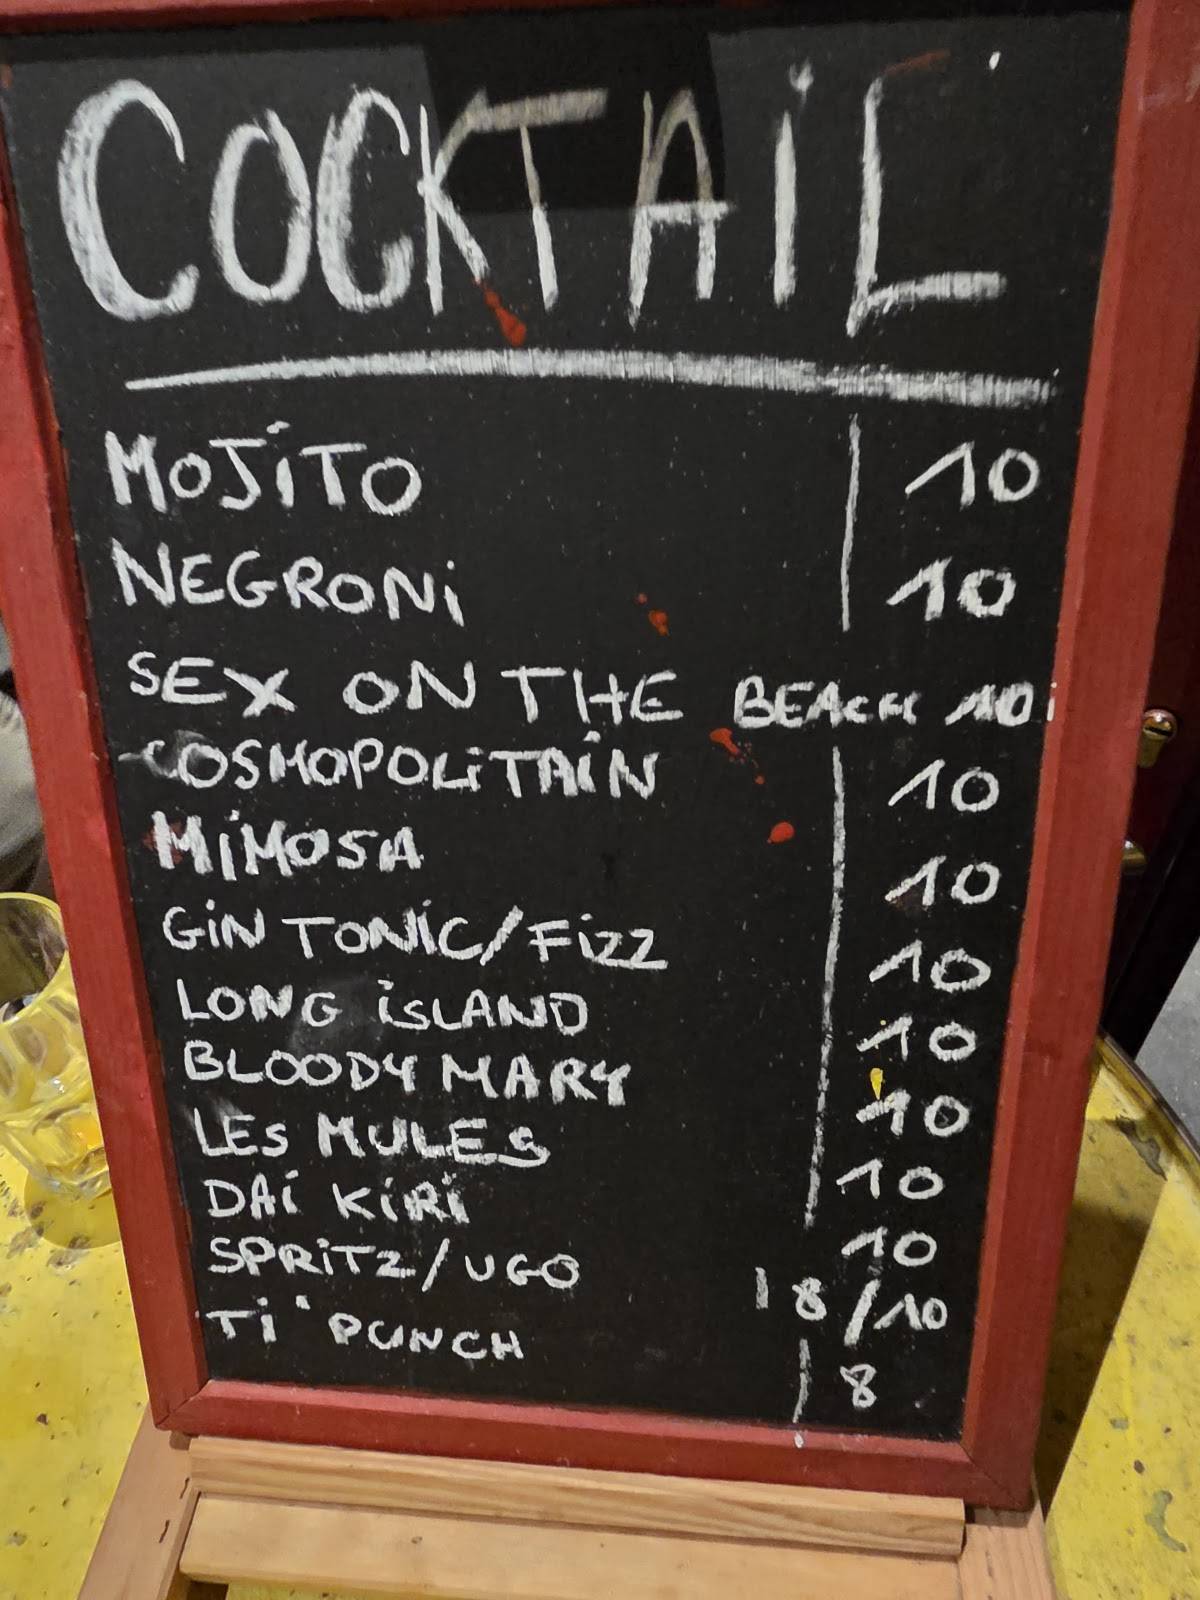 COCKTAiL
MOJiTO 10
NEGRONi 10
SEX ON THE BEACH 10
COSMOPOLiTAiN 10
MiMOSA 10
GiN TONiC/FiZZ 10
LONG iSLAND 10
BLOODY MARY 10
LES MULES 10
DAi KiRi 10
SPRiTZ/UGO 8/10
Ti' PUNCH 8